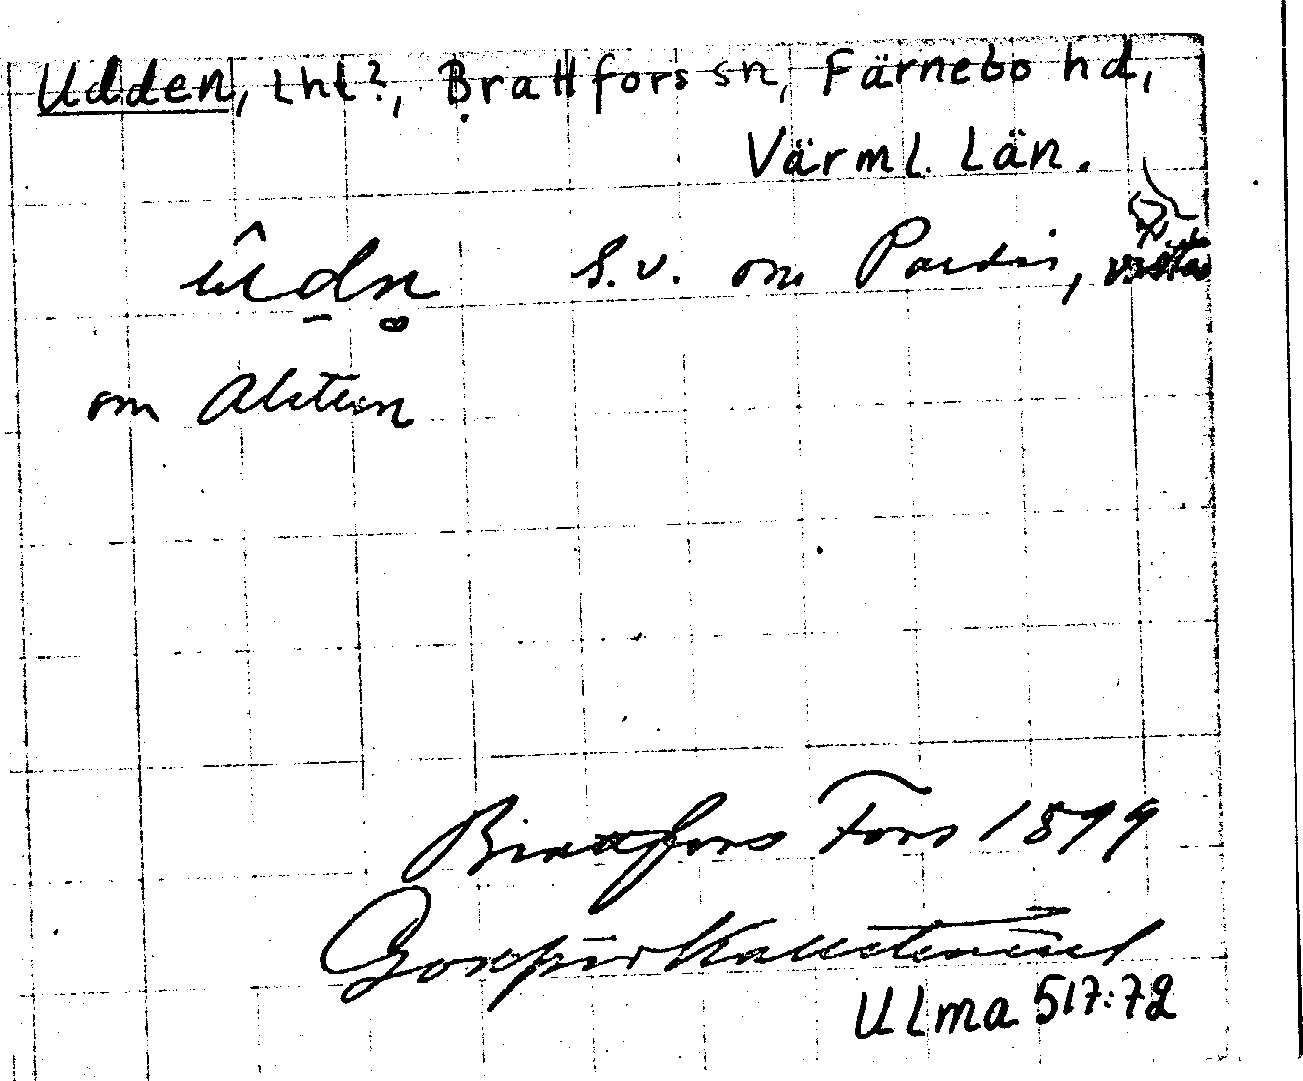 Udden, Lht?, Brattfors sn, Färnebo hd,
Värml. Län.
ûdn S.v. om Pardis,
om Alstern
Brattfors Fors 1899
Kallstenius
ULma 517:72